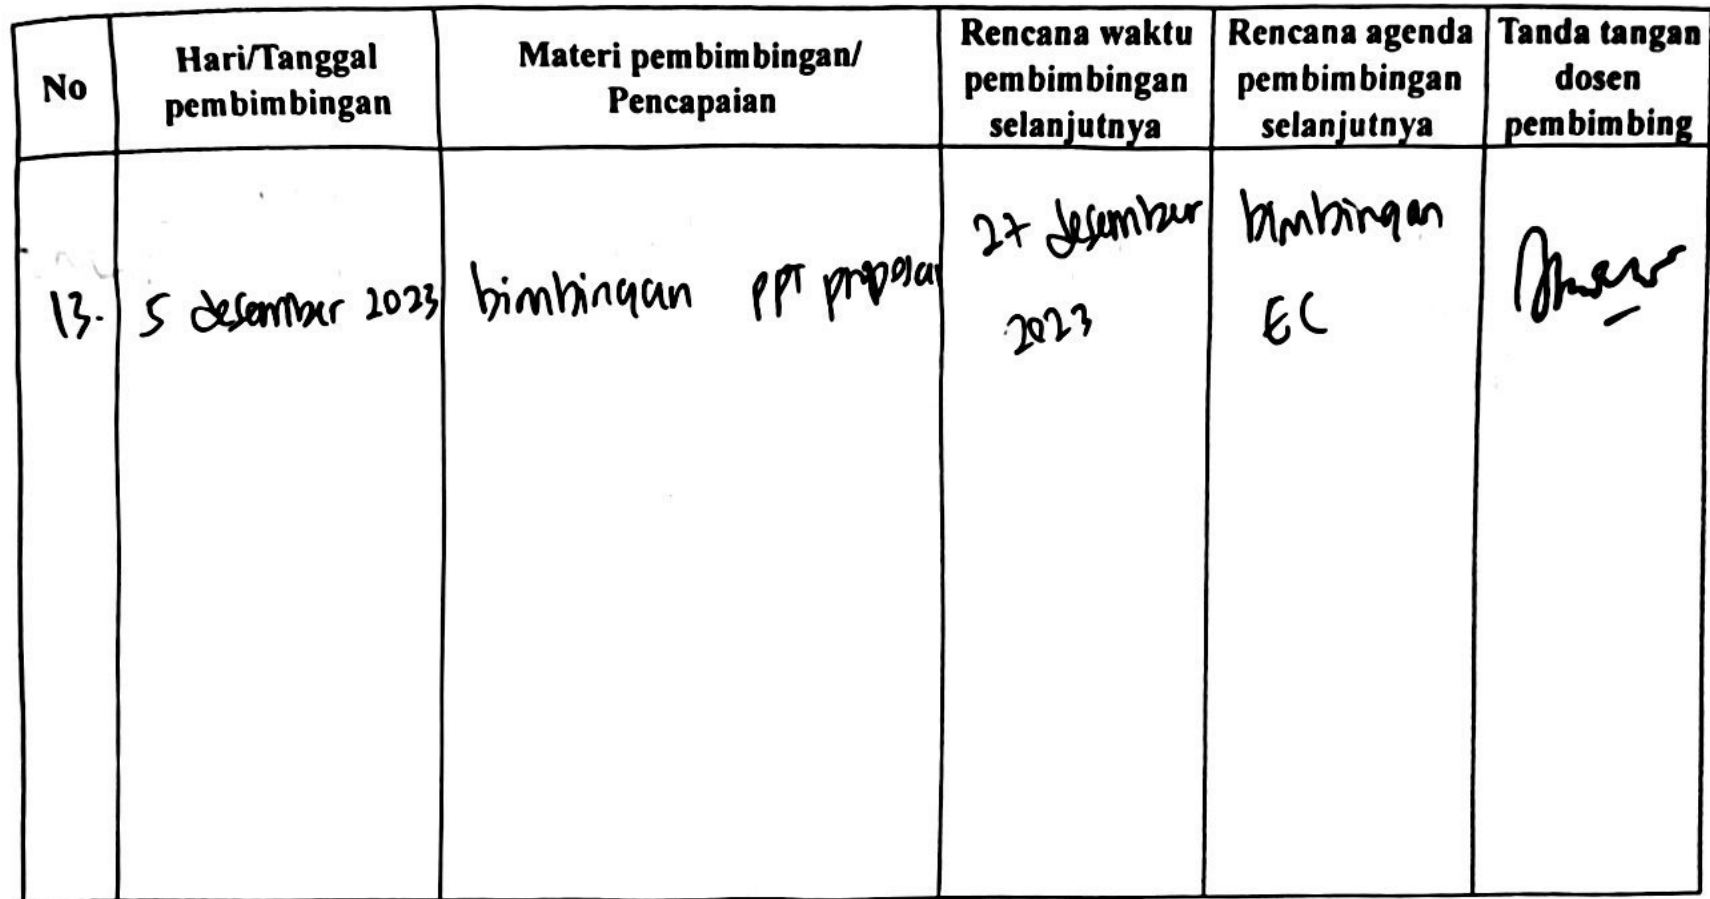 No
Hari/Tanggal
pembimbingan
Materi pembimbingan/
Pencapaian
Rencana waktu
pembimbingan
selanjutnya
Rencana agenda
pembimbingan
selanjutnya
Tanda tangan
dosen
pembimbing
13.
5 desember 2023
bimbingan PPT proposal
27 desember
2023
bimbingan
EC